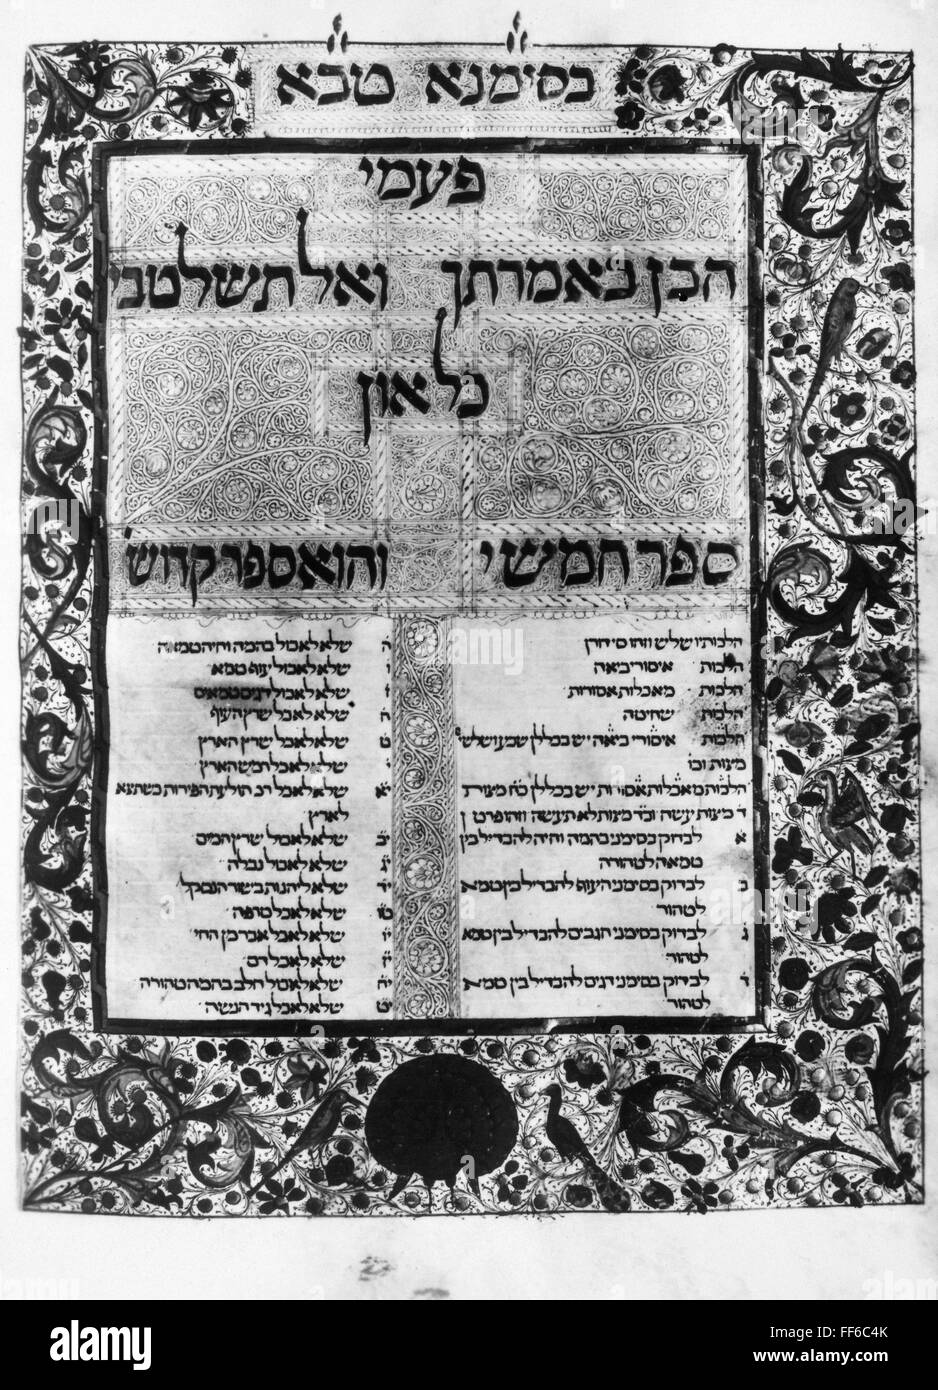 בסימנא טבא
פעמי
הכן באמרתך ואל תשלט בי
כל און
ספר חמישי והוא ספר קדושה
הלכותיו שלש וזהו סידורן
הלכות איסורי ביאה
הלכות מאכלות אסורות
הלכות שחיטה
הלכות איסורי ביאה יש בכללן שבע ושלשי
מצות וכו
הלכות מאכלות אסורות יש בכללן כח מצות ד
ד מצות עשה וכד מצות לא תעשה וזהו פרטן
א לבדוק בסימני בהמה וחיה להבדיל בין
טמאה לטהורה
ב לבדוק בסימני העוף להבדיל בין טמא
לטהור
ג לבדוק בסימני חגבים להבדיל בין טמא
לטהור
ד לבדוק בסימני דגים להבדיל בין טמא
לטהור
ה שלא לאכול בהמה וחיה טמאה
ו שלא לאכול עוף טמא
ז שלא לאכול דגים טמאים
ח שלא לאכל שרץ העוף
ט שלא לאכל שרץ הארץ
י שלא לאכל רמש הארץ
יא שלא לאכל תולעת הפירות כשתצא
לארץ
יב שלא לאכול שרץ המים
יג שלא לאכול נבלה
יד שלא ליהנות בשור הנסקל
טו שלא לאכל טרפה
יו שלא לאכל אבר מן החי
יז שלא לאכל דם
יח שלא לאכול חלב בהמה טהורה
יט שלא לאכל גיד הנשה
alamy
Image ID: FF6C4K
www.alamy.com